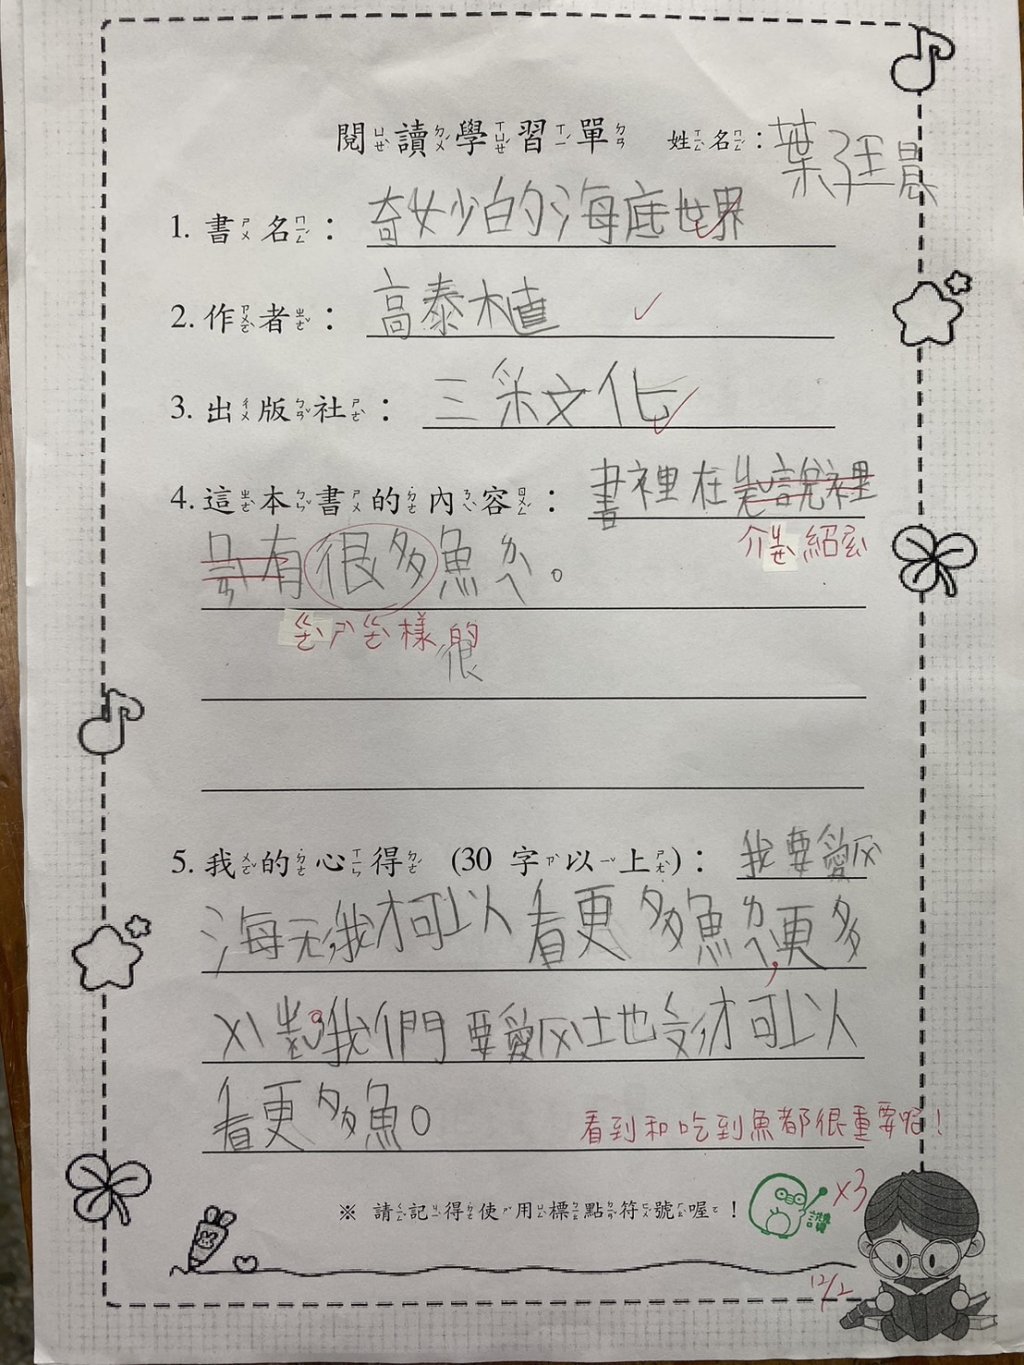 閱ㄩㄝˋ讀ㄉㄨˊ學ㄒㄩㄝˊ習ㄒㄧˊ單ㄉㄢ 姓ㄒㄧㄥˋ名ㄇㄧㄥˊ：葉 晨
1. 書ㄕㄨ名ㄇㄧㄥˊ：奇妙的海底世界
2. 作ㄗㄨㄛˋ者ㄓㄜˇ：高泰植
3. 出ㄔㄨ版ㄅㄢˇ社ㄕㄜˋ：三采文化
4. 這ㄓㄜˋ本ㄅㄣˇ書ㄕㄨ的ㄉㄜ˙內ㄋㄟˋ容ㄖㄨㄥˊ：書裡在 說裡
介 紹
有很多魚ㄌㄟˋ。
ㄍㄜˋㄕˋㄍㄜˋ樣的
很
5. 我ㄨㄛˇ的ㄉㄜ˙心ㄒㄧㄣ得ㄉㄜˊ (30 字ㄗˋ以ㄧˇ上ㄕㄤˋ)：我要愛ㄏㄨˋ
海ㄧㄤˊ我才可以看更多魚ㄌㄟˋ，更多
。我們要愛ㄏㄨˋ土地 才可以
看更多魚。
看到和吃到魚都很重要喔！
※ 請ㄑㄧㄥˇ記ㄐㄧˋ得ㄉㄜˊ使ㄕˇ用ㄩㄥˋ標ㄅㄧㄠ點ㄉㄧㄢˇ符ㄈㄨˊ號ㄏㄠˋ喔ㄛ！
讚 x3
12/2